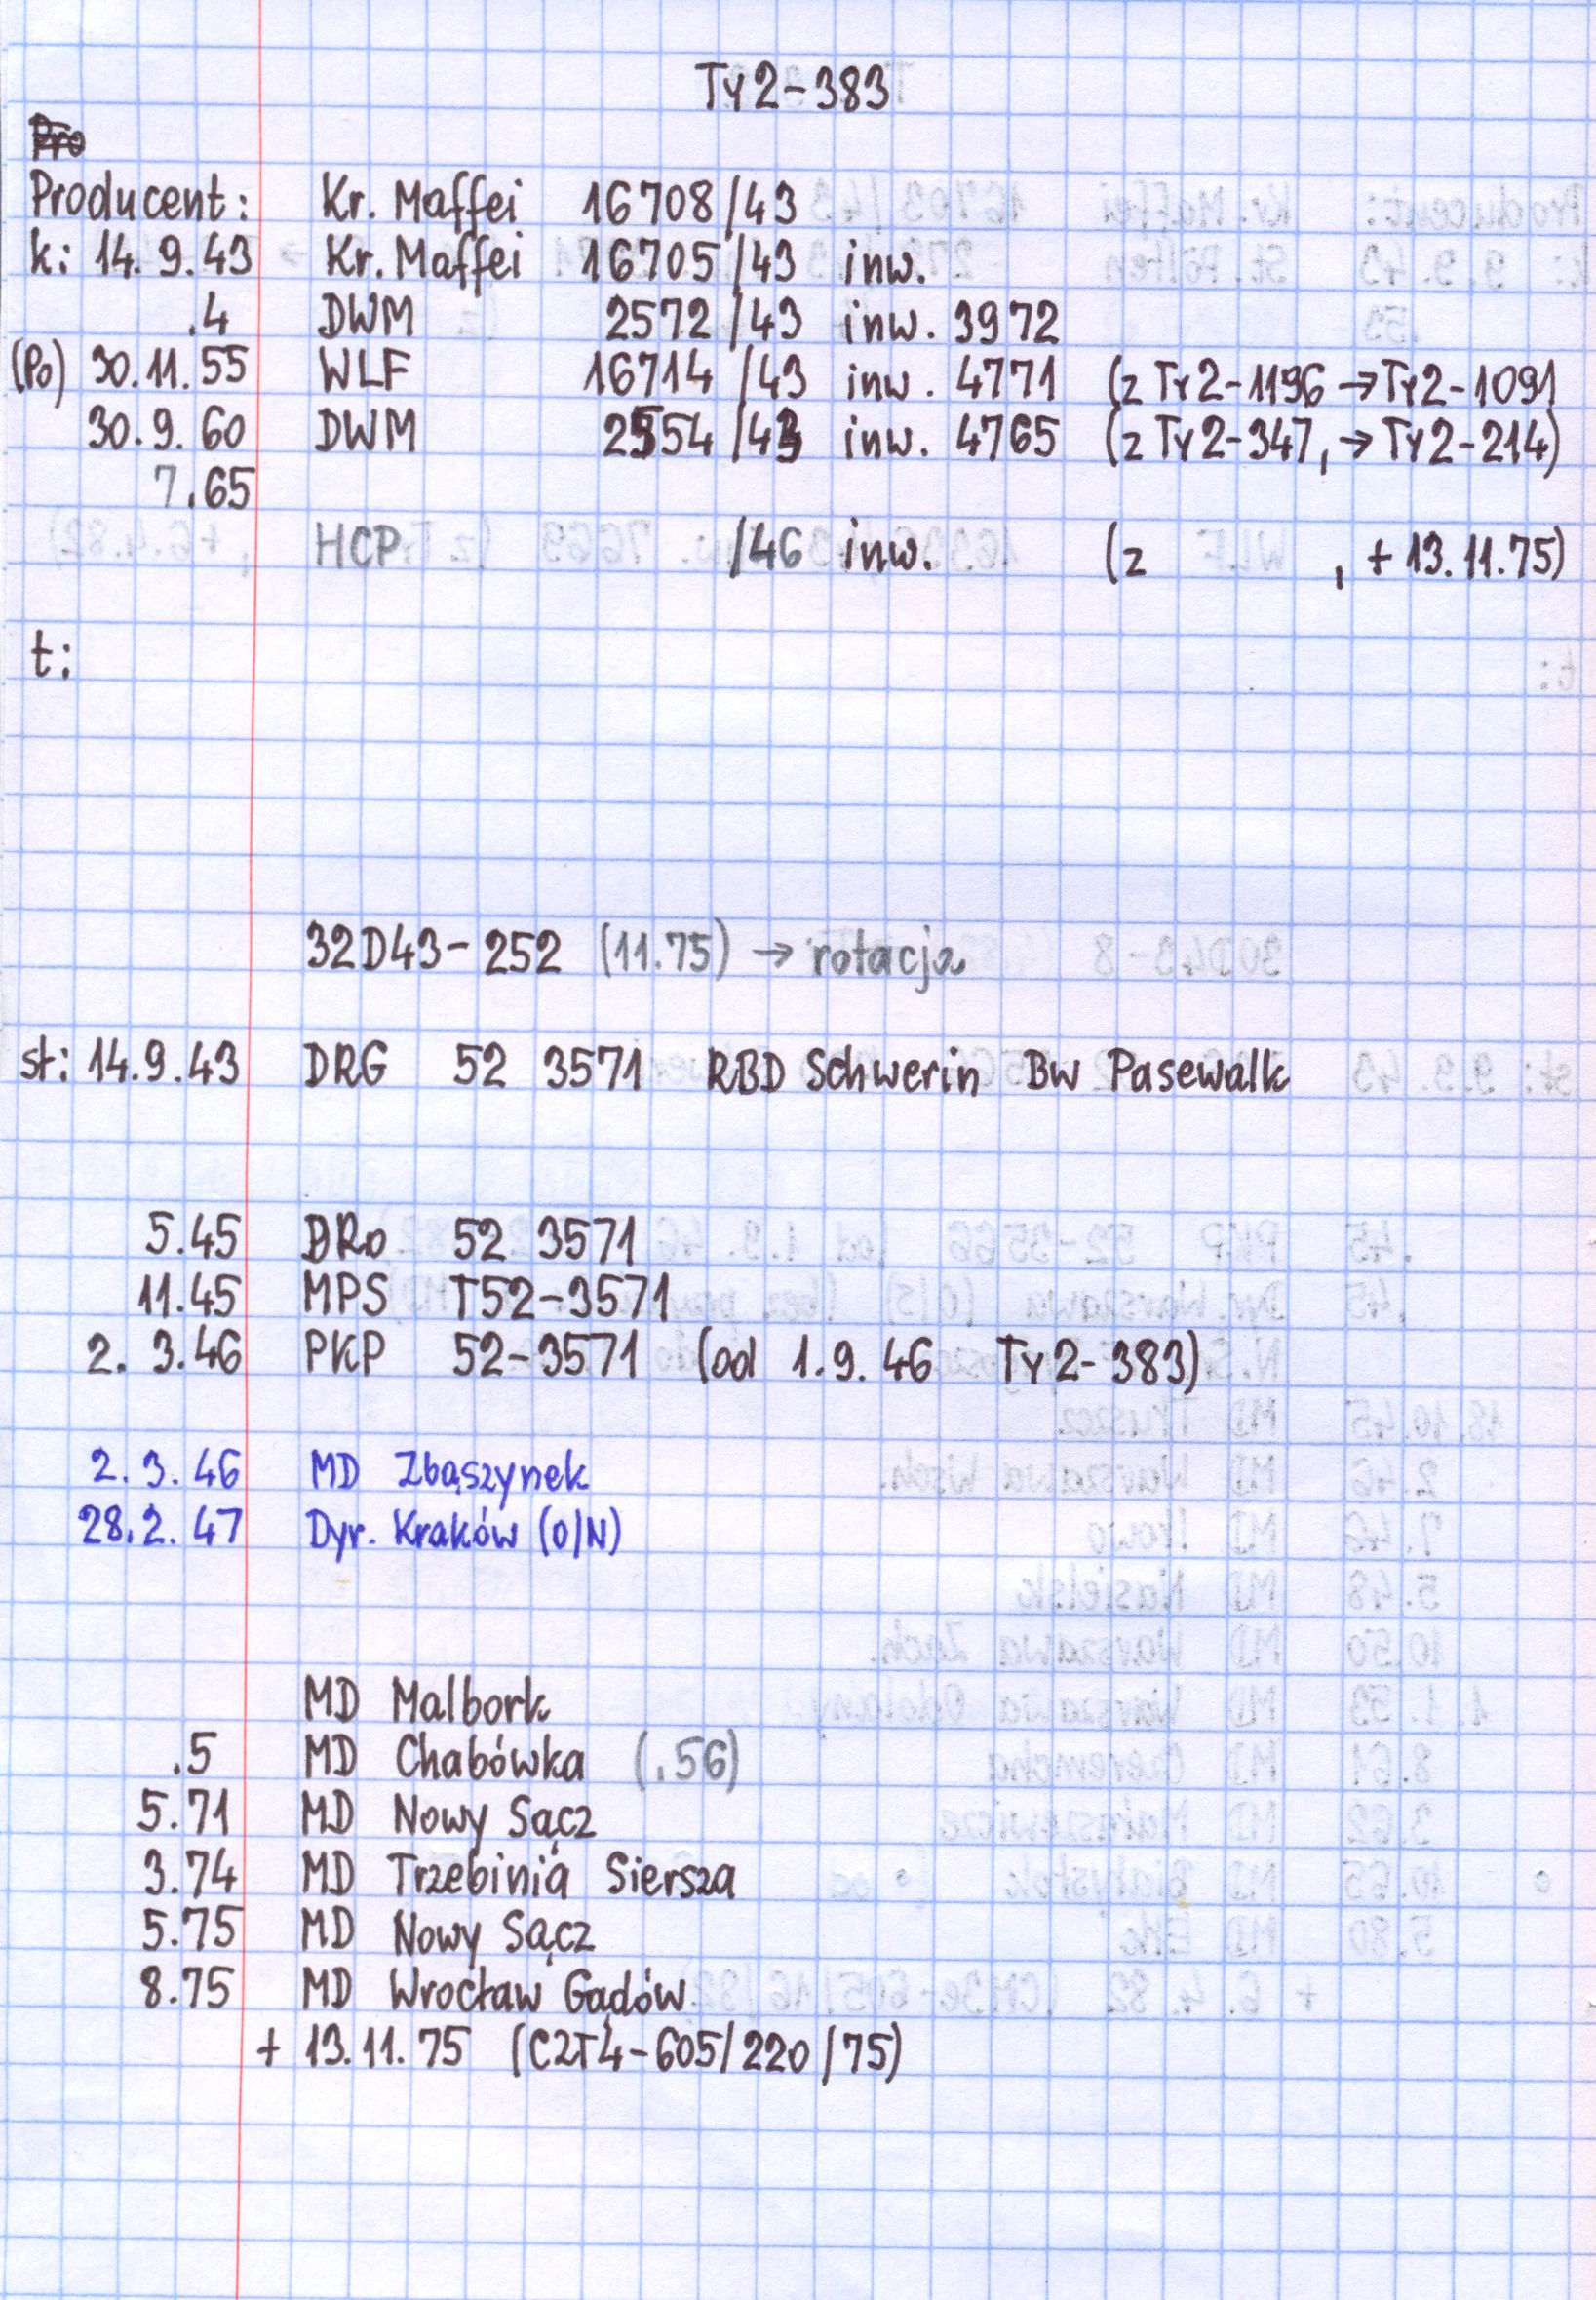 Ty2-383
Pro
Producent: Kr. Maffei 16708/43
k: 14.9.43 Kr. Maffei 16705/43 inw.
.4 DWM 2572/43 inw. 3972
(Po) 30.11.55 WLF 16714/43 inw. 4771 (z Ty2-1196 →Ty2-1091
30.9.60 DWM 2554/43 inw. 4765 (z Ty2-347, → Ty2-214)
7.65
HCP /46 inw. (z , + 13.11.75)
t:
32D43-252 (11.75) → rotacja
st: 14.9.43 DRG 52 3571 RBD Schwerin Bw Pasewalk
5.45 DRo 52 3571
11.45 MPS T52-3571
2.3.46 PKP 52-3571 (od 1.9.46 Ty2-383)
2.3.46 MD Zbąszynek
28.2.47 Dyr. Kraków (O/N)
MD Malbork
.5 MD Chabówka (.56)
5.71 MD Nowy Sącz
3.74 MD Trzebinia Siersza
5.75 MD Nowy Sącz
8.75 MD Wrocław Gądów
+ 13.11.75 (C2T4-605/220/75)